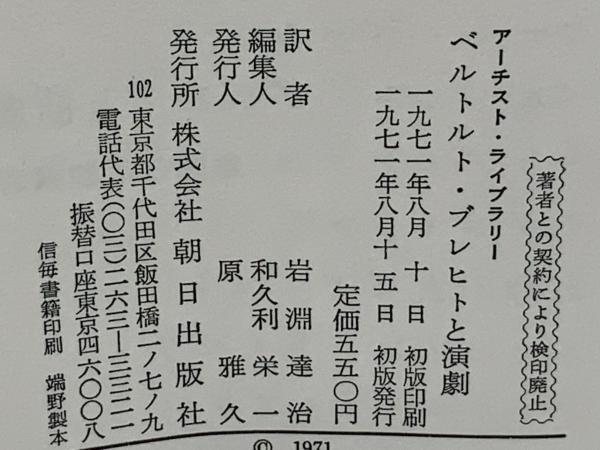 著者との契約により検印廃止
アーチスト・ライブラリー
ベルトルト・ブレヒトと演劇
一九七一年八月 十 日 初版印刷
一九七一年八月十五日 初版発行
定価五五〇円
訳 者 岩淵達治
編集人 和久利栄一
発行人 原 雅久
発行所 株式会社 朝日出版社
102 東京都千代田区飯田橋二ノ七ノ九
電話代表(〇三)二六三―三三二一
振替口座東京四六〇〇八
信毎書籍印刷 端野製本
© 1971